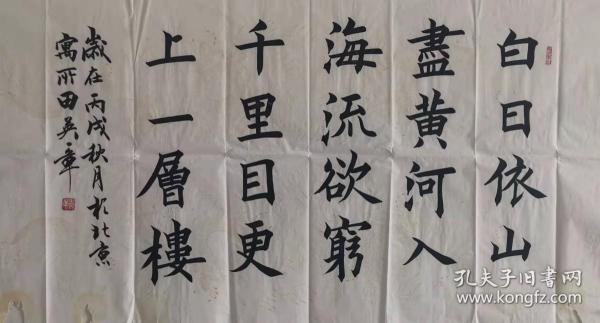 白日依山
盡黄河入
海流欲窮
千里目更
上一層樓
歲在丙戌秋月於北京
寓所田英章
孔夫子旧书网
www.kongfz.com